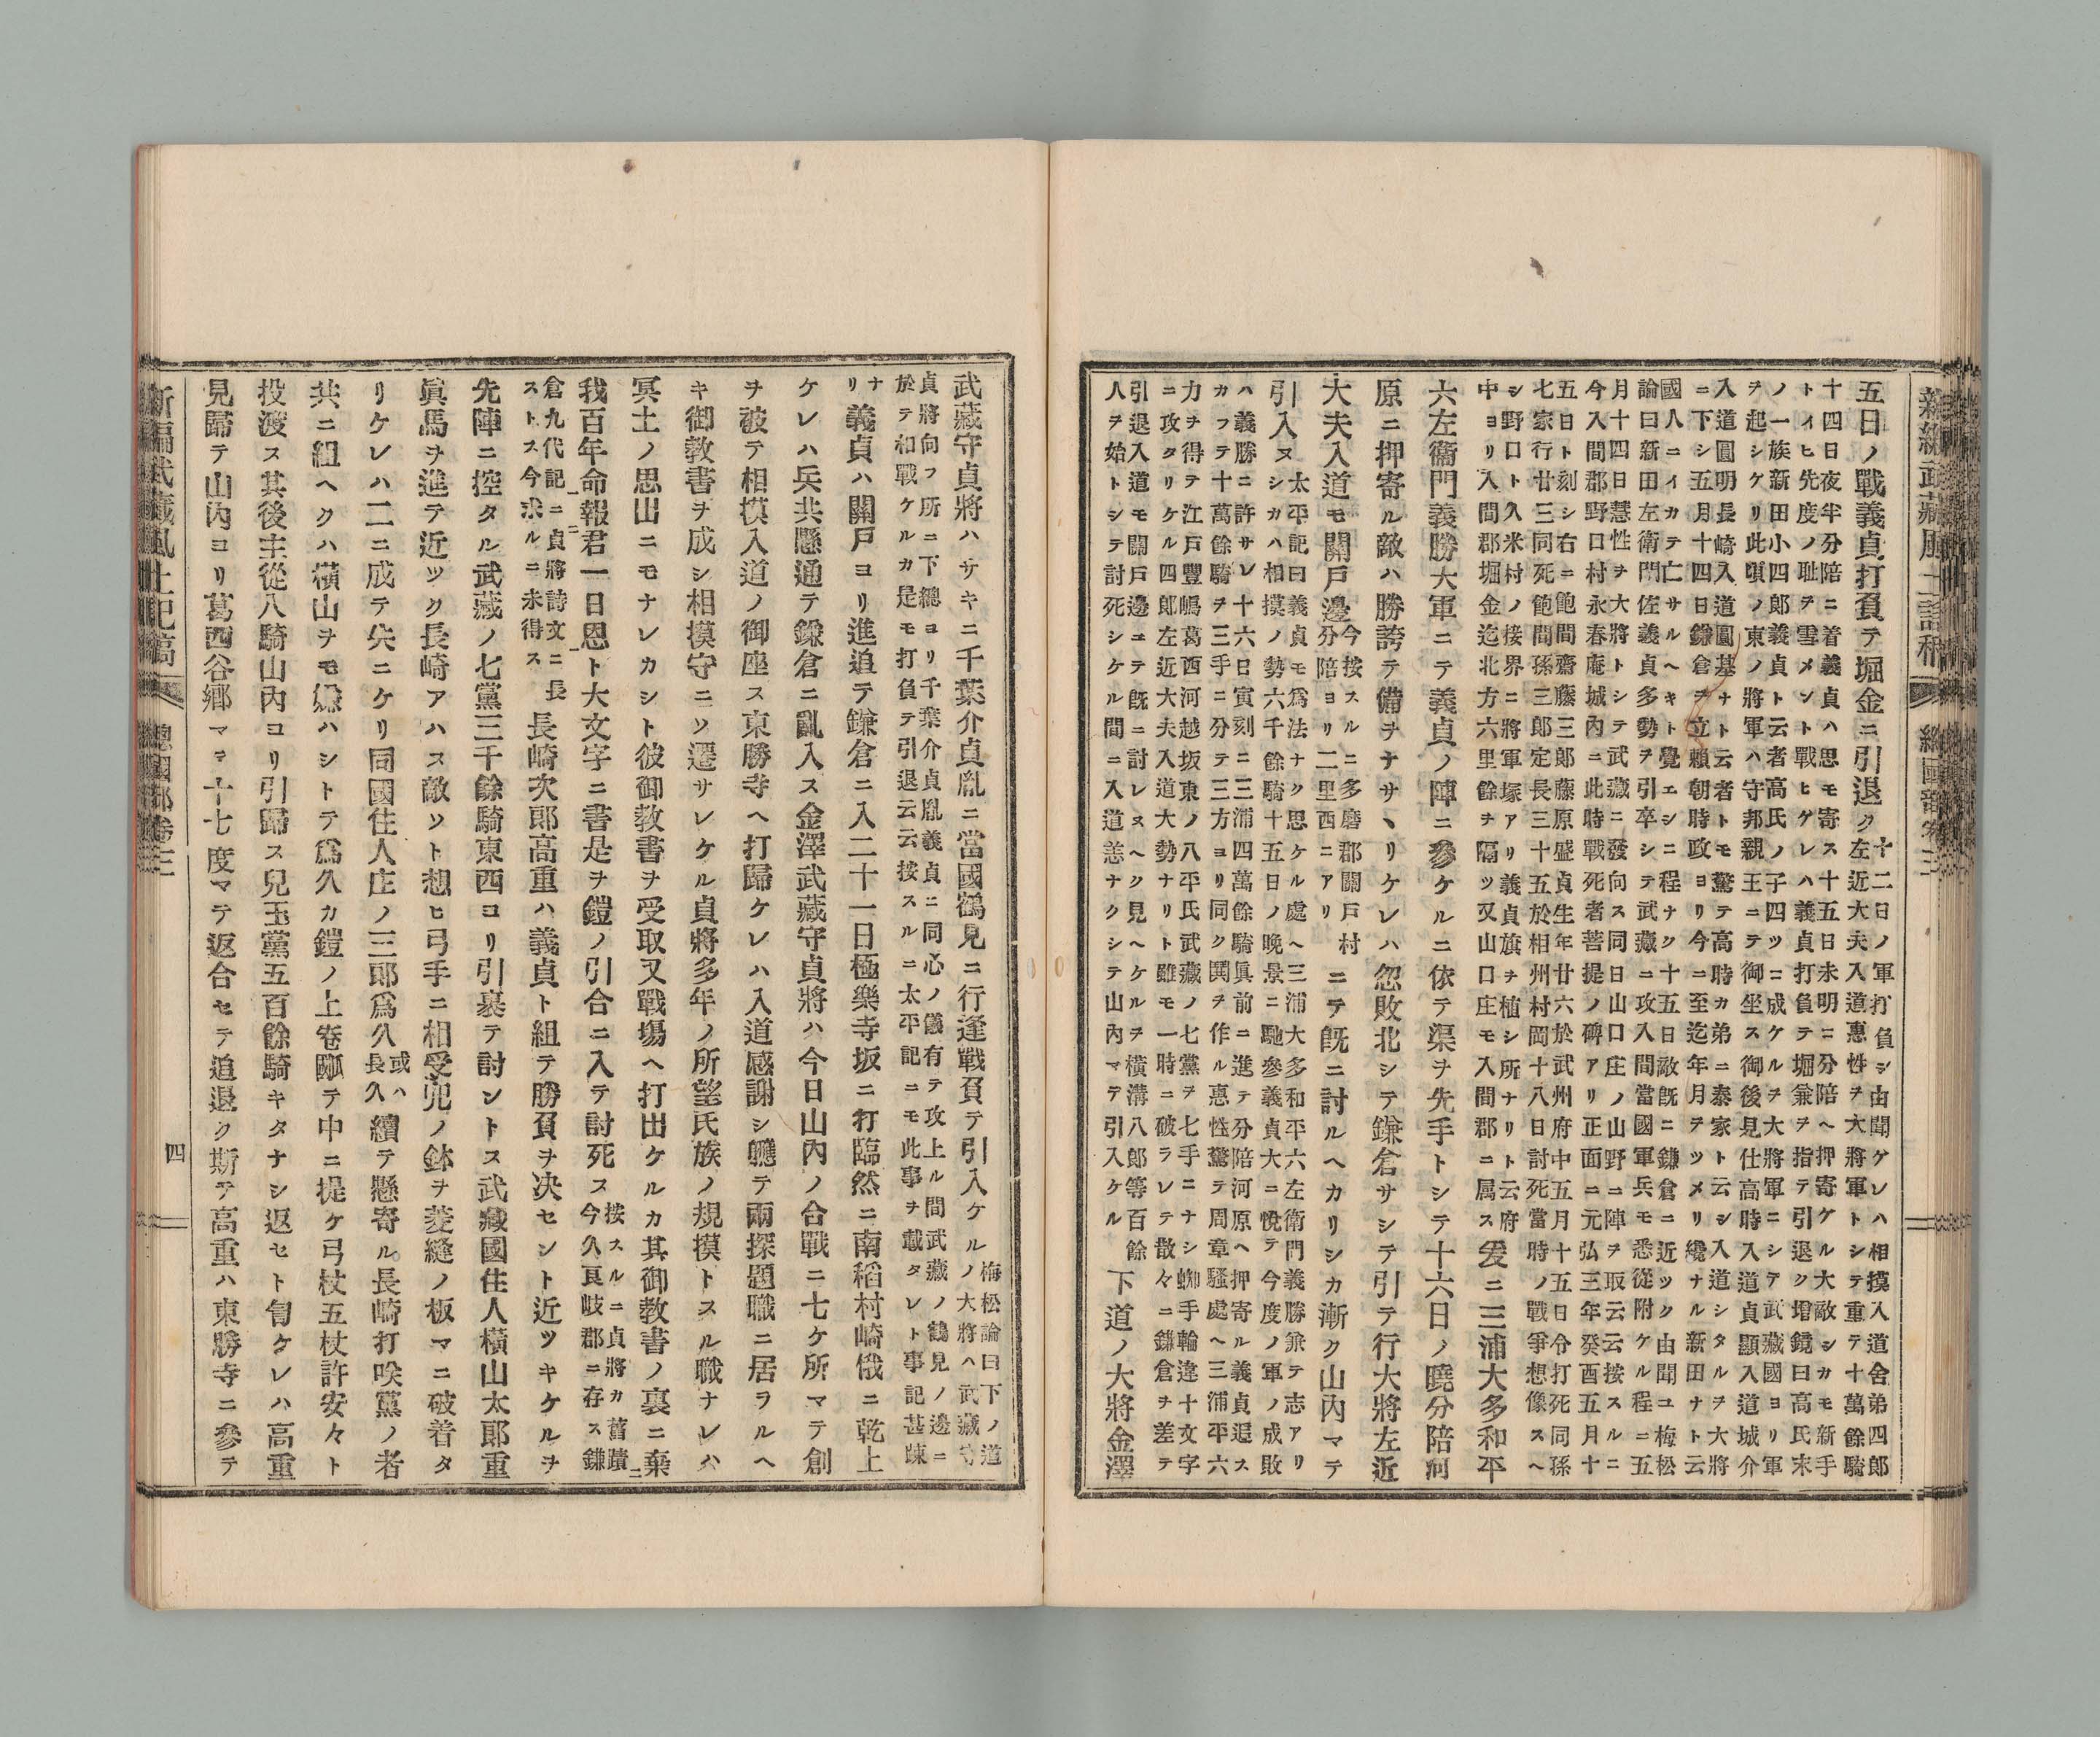 五日ノ戰義貞打負テ堀金ニ引退ク
十二日ノ軍打負シ由聞ケレハ相摸入道舍弟四郎
左近大夫入道惠性ヲ大將軍トシテ重テ十萬餘騎
十四日夜半分陪ニ着義貞ハ思モ寄ス十五日未明ニ分陪ヘ押寄ケル大敵シカモ新手
トイヒ先度ノ耻ヲ雪メント戰ヒケレハ義貞打負テ堀兼ヲ指テ引退ク増鏡曰高氏末
ノ一族新田小四郎義貞ト云者高氏ノ子四ツニ成ケルヲ大將軍ニシテ武藏國ヨリ軍
ヲ起シケリ此頃ノ東ノ將軍ハ守邦親王ニテ御坐ス御後見仕高時入道貞顯入道城介
入道圓明長崎入道圓基ナト云者トモ驚テ高時カ弟ニ泰家ト云シ入道シタルヲ大將
ニ下シ五月十四日鎌倉ヲ立賴朝時政ヨリ今ニ至迄年月ヲツメリ纔ナル新田ナト云
國人ニイカテ亡サルヘキト覺エシニ程ナク十五日敵既ニ鎌倉ニ近ツク由聞ユ梅松
論曰新田左衛門佐義貞多勢ヲ引卒シテ武藏ニ攻入間當國軍兵モ悉從附ケル程ニ五
月十四日慧性ヲ大將トシテ武藏ニ發向ス同日山口庄ノ山野ニ陣ヲ取云云按スルニ
今入間郡野口村永春庵城内ニ此時戰死者菩提ノ碑アリ正面ニ元弘三年癸酉五月十
五日ト刻シ右ニ飽間齋藤三郎藤原盛貞生年廿六於武州府中五月十五日令打死同孫
七家行廿三同死飽間孫三郎定長三十五於相州村岡十八日討死當時ノ戰爭想像スヘ
シ野口ト久米村ノ接界ニ將軍塚アリ義貞旗ヲ植シ所ナリト云府
中ヨリ入間郡堀金迄北方六里餘ヲ隔ツ又山口庄モ入間郡ニ属ス
爰ニ三浦大多和平
六左衞門義勝大軍ニテ義貞ノ陣ニ參ケルニ依テ渠ヲ先手トシテ十六日ノ曉分陪河
原ニ押寄ル敵ハ勝誇テ備ヲナサヽリケレハ忽敗北シテ鎌倉サシテ引テ行大將左近
大夫入道モ關戸邊
今按スルニ多磨郡關戸村
分陪ヨリ二里西ニアリ
ニテ既ニ討ルヘカリシカ漸ク山内マテ
引入ヌ
太平記曰義貞モ爲法ナク思ケル處ヘ三浦大多和平六左衛門義勝兼テ志アリ
シカハ相摸ノ勢六千餘騎十五日ノ晩景ニ馳參義貞大ニ悅テ今度ノ軍ノ成敗
ハ義勝ニ許サレ十六日寅刻ニ三浦四萬餘騎眞前ニ進テ分陪河原ヘ押寄ル義貞退ス
カフテ十萬餘騎ヲ三手ニ分テ三方ヨリ同ク鬨ヲ作ル惠性驚テ周章騷處ヘ三浦平六
力ヲ得テ江戸豐嶋葛西河越坂東ノ八平氏武藏ノ七黨ヲ七手ニナシ蜘手輪違十文字
ニ攻タリケル四郎左近大夫入道大勢ナリト雖モ一時ニ破ラレテ散々ニ鎌倉ヲ差テ
引退入道モ關戸邊ニテ既ニ討レヌヘク見ヘケルヲ横溝八郎等百餘
人ヲ始トシテ討死シケル間ニ入道恙ナクシテ山内マテ引入ケル
下道ノ大將金澤
武藏守貞將ハサキニ千葉介貞胤ニ當國鶴見ニ行逢戰負テ引入ケル
梅松論曰下ノ道
ノ大將ハ武藏守
貞將向フ所ニ下總ヨリ千葉介貞胤義貞ニ同心ノ儀有テ攻上ル間武藏ノ鶴見ノ邊ニ
於テ相戰ケルカ是モ打負テ引退云云按スルニ太平記ニモ此事ヲ載タレト事記甚疎
ナリ
義貞ハ關戸ヨリ進道テ鎌倉ニ入二十一日極樂寺坂ニ打臨然ニ南稻村崎俄ニ乾上
ケレハ兵共懸通テ鎌倉ニ亂入ス金澤武藏守貞將ハ今日山内ノ合戰ニ七ケ所マテ創
ヲ被テ相摸入道ノ御座ス東勝寺ヘ打歸ケレハ入道感謝シ軈テ兩探題職ニ居ヲルヘ
キ御教書ヲ成シ相摸守ニソ遷サレケル貞將多年ノ所望氏族ノ規摸トスル職ナレハ
冥土ノ思出ニモナレカシト彼御教書ヲ受取又戰場ヘ打出ケルカ其御教書ノ裏ニ棄
我百年命報君一日恩ト大文字ニ書是ヲ鎧ノ引合ニ入テ討死ス
按スルニ貞將カ舊蹟
今久良岐郡ニ存ス鎌
倉九代記ニ貞將詩文ニ長
ストス今求ルニ未得ス
長崎次郎高重ハ義貞ト組テ勝負ヲ决セント近ツキケルヲ
先陣ニ控タル武藏ノ七黨三千餘騎東西ヨリ引裹テ討ントス武藏國住人横山太郎重
眞馬ヲ進テ近ツク長崎アハス敵ソト想ヒ弓手ニ相受兜ノ鉢ヲ菱縫ノ板マニ破着タ
リケレハ二ニ成テ失ニケリ同國住人庄ノ三郎爲久
或ハ
長久
續テ懸寄ル長崎打咲黨ノ者
共ニ組ヘクハ横山ヲモ嫌ハシトテ爲久カ鎧ノ上卷𢴃テ中ニ提ケ弓杖五杖許安々ト
投渡ス其後主從八騎山内ヨリ引歸ス兒玉黨五百餘騎キタナシ返セト訇ケレハ高重
見歸テ山内ヨリ葛西谷郷マテ十七度マテ返合セテ追退ク斯テ高重ハ東勝寺ニ參テ
新編武藏風土記稿
總國部卷三
四